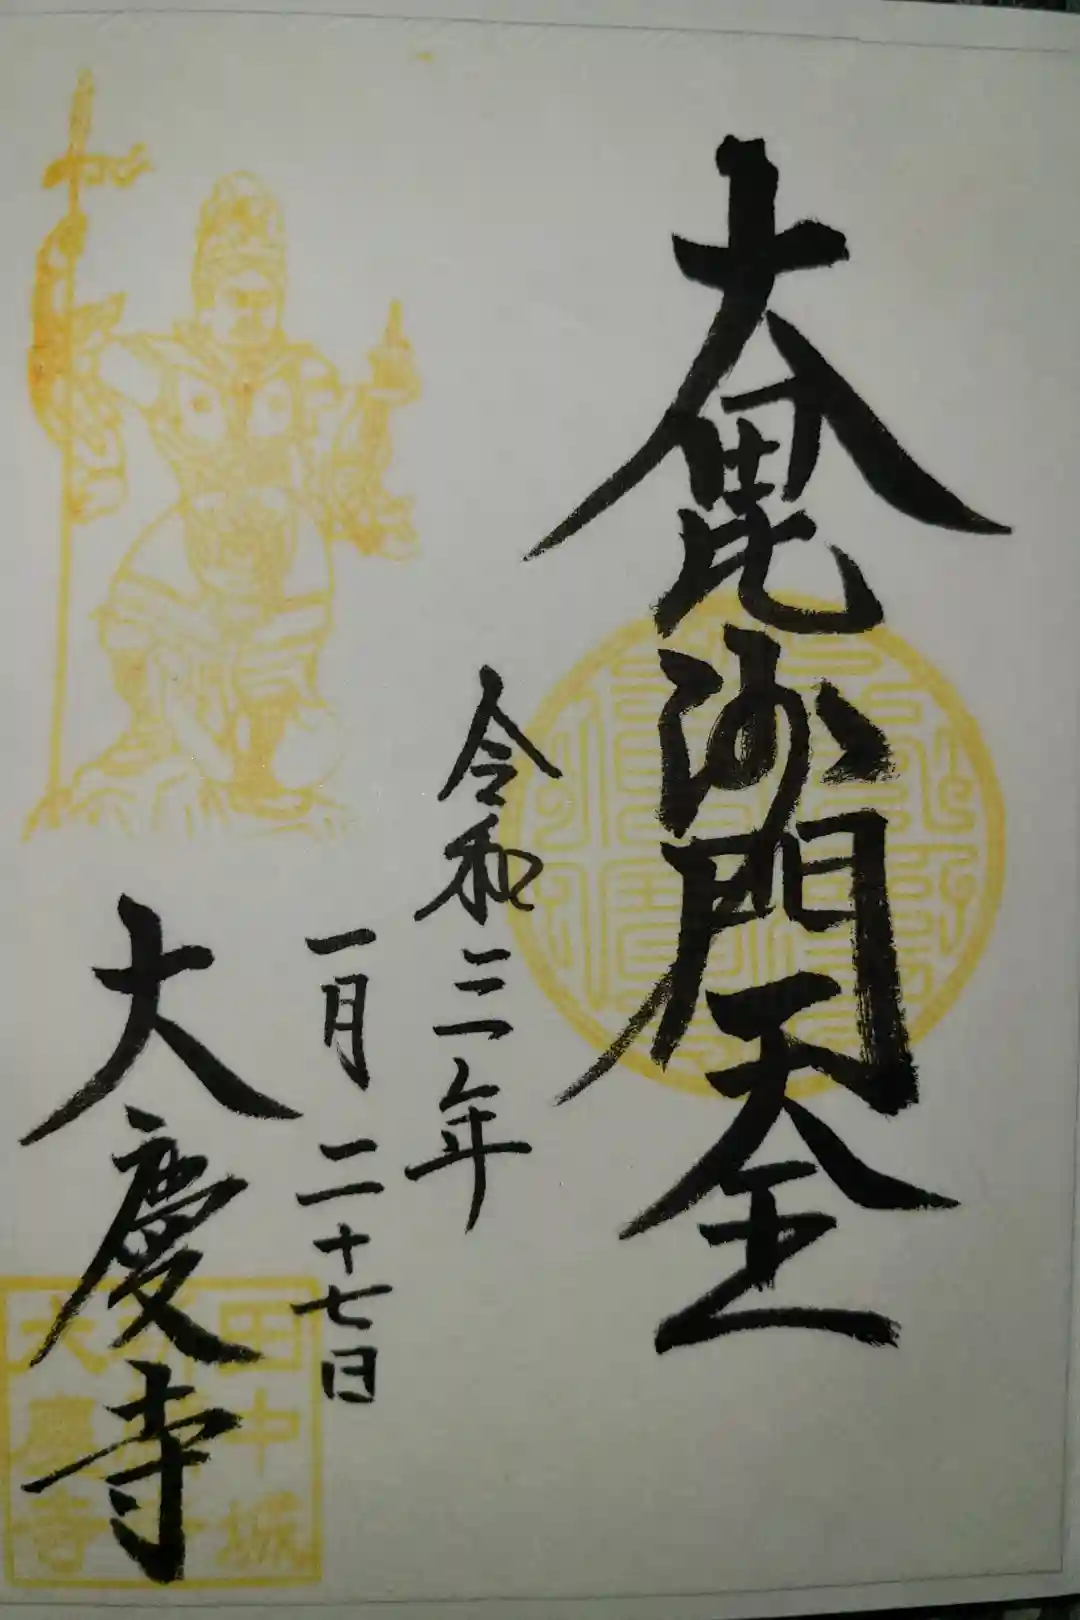 大毘沙門天王
令和三年
一月二十七日
大慶寺
田中城
大慶寺